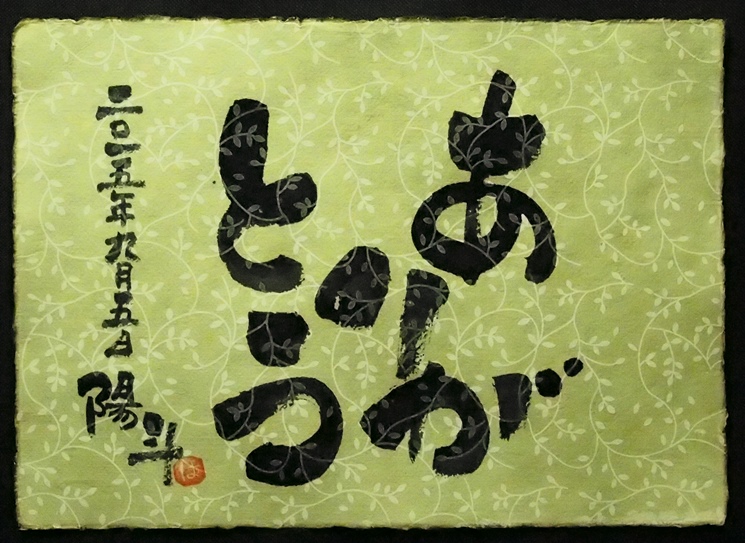 ありが
とう
二〇一五年九月五日
陽斗